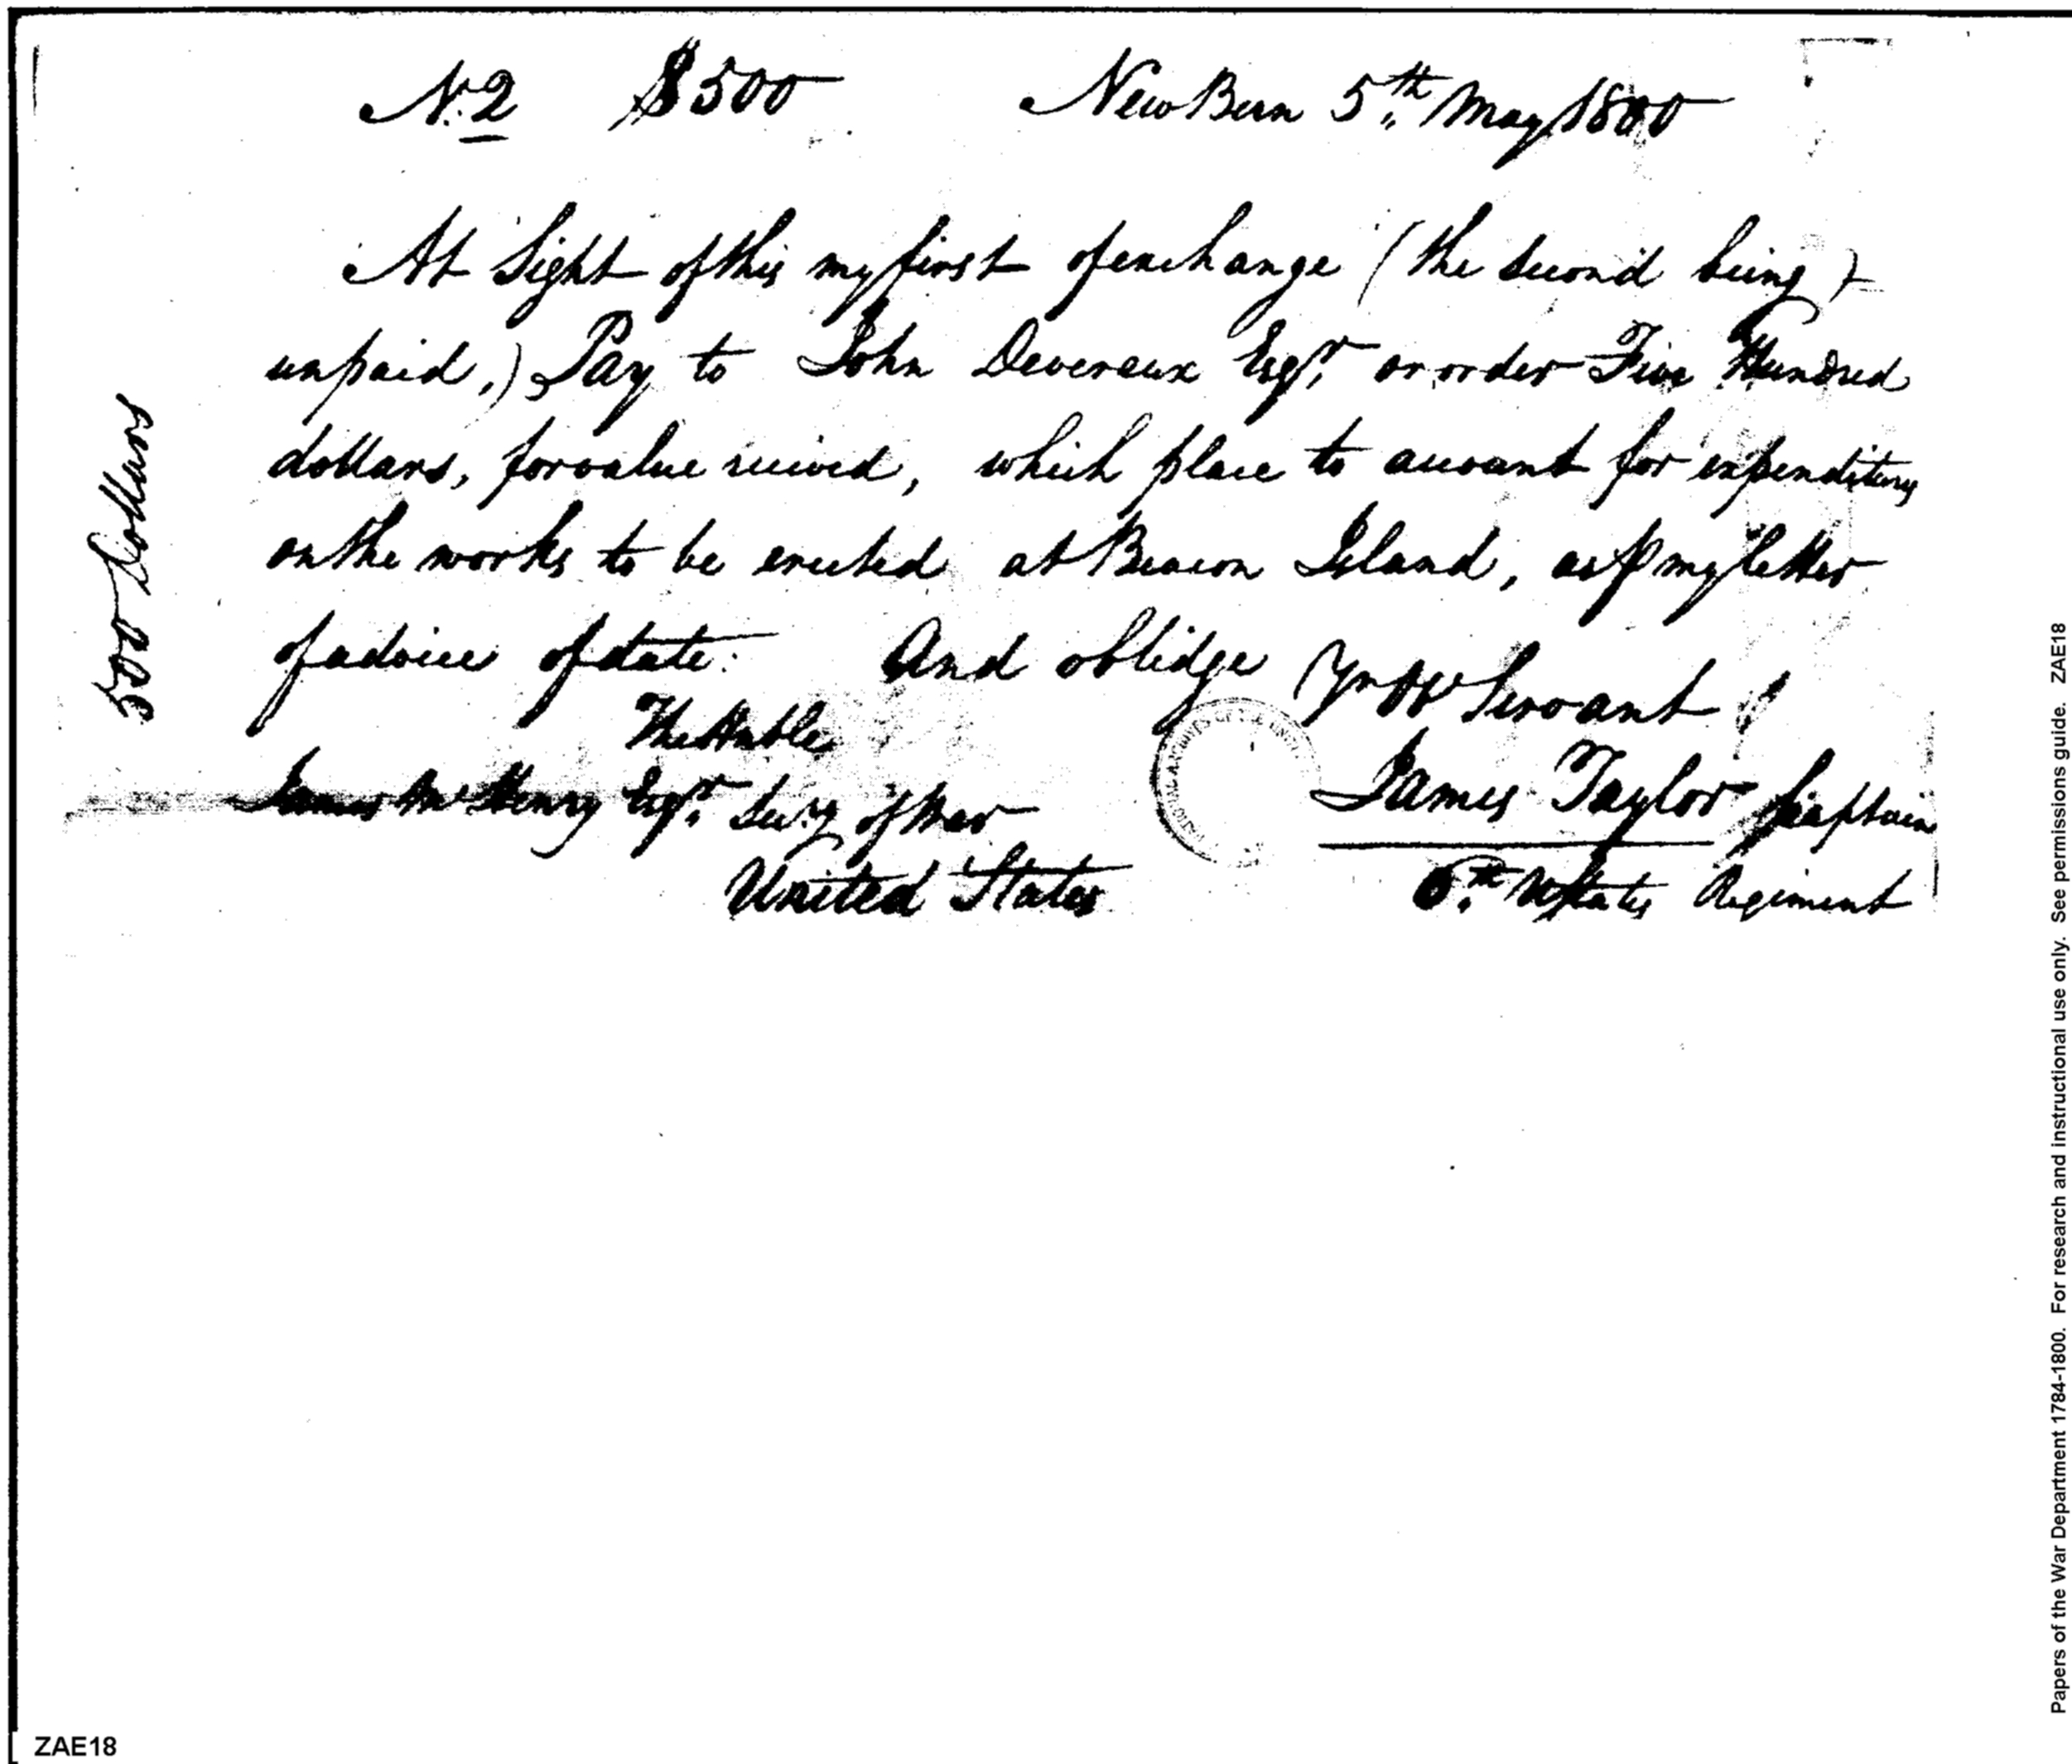 N.2 $500 New Bern 5th May 1800
At Sight of this my first of exchange (the second being)
unpaid,) Pay to John Devereux Esqr. or order Five Hundred
dollars, for value received, which place to account for expenditures
on the works to be erected at Beacon Island, as p my letter
of advice of date. And oblidge Yr Ob Servant
The Hnble
James McHenry Esqr. Secy of War
United States
James Taylor Captain
6th UStates Regiment
500 Dollars
Papers of the War Department 1784-1800. For research and instructional use only. See permissions guide. ZAE18
ZAE18